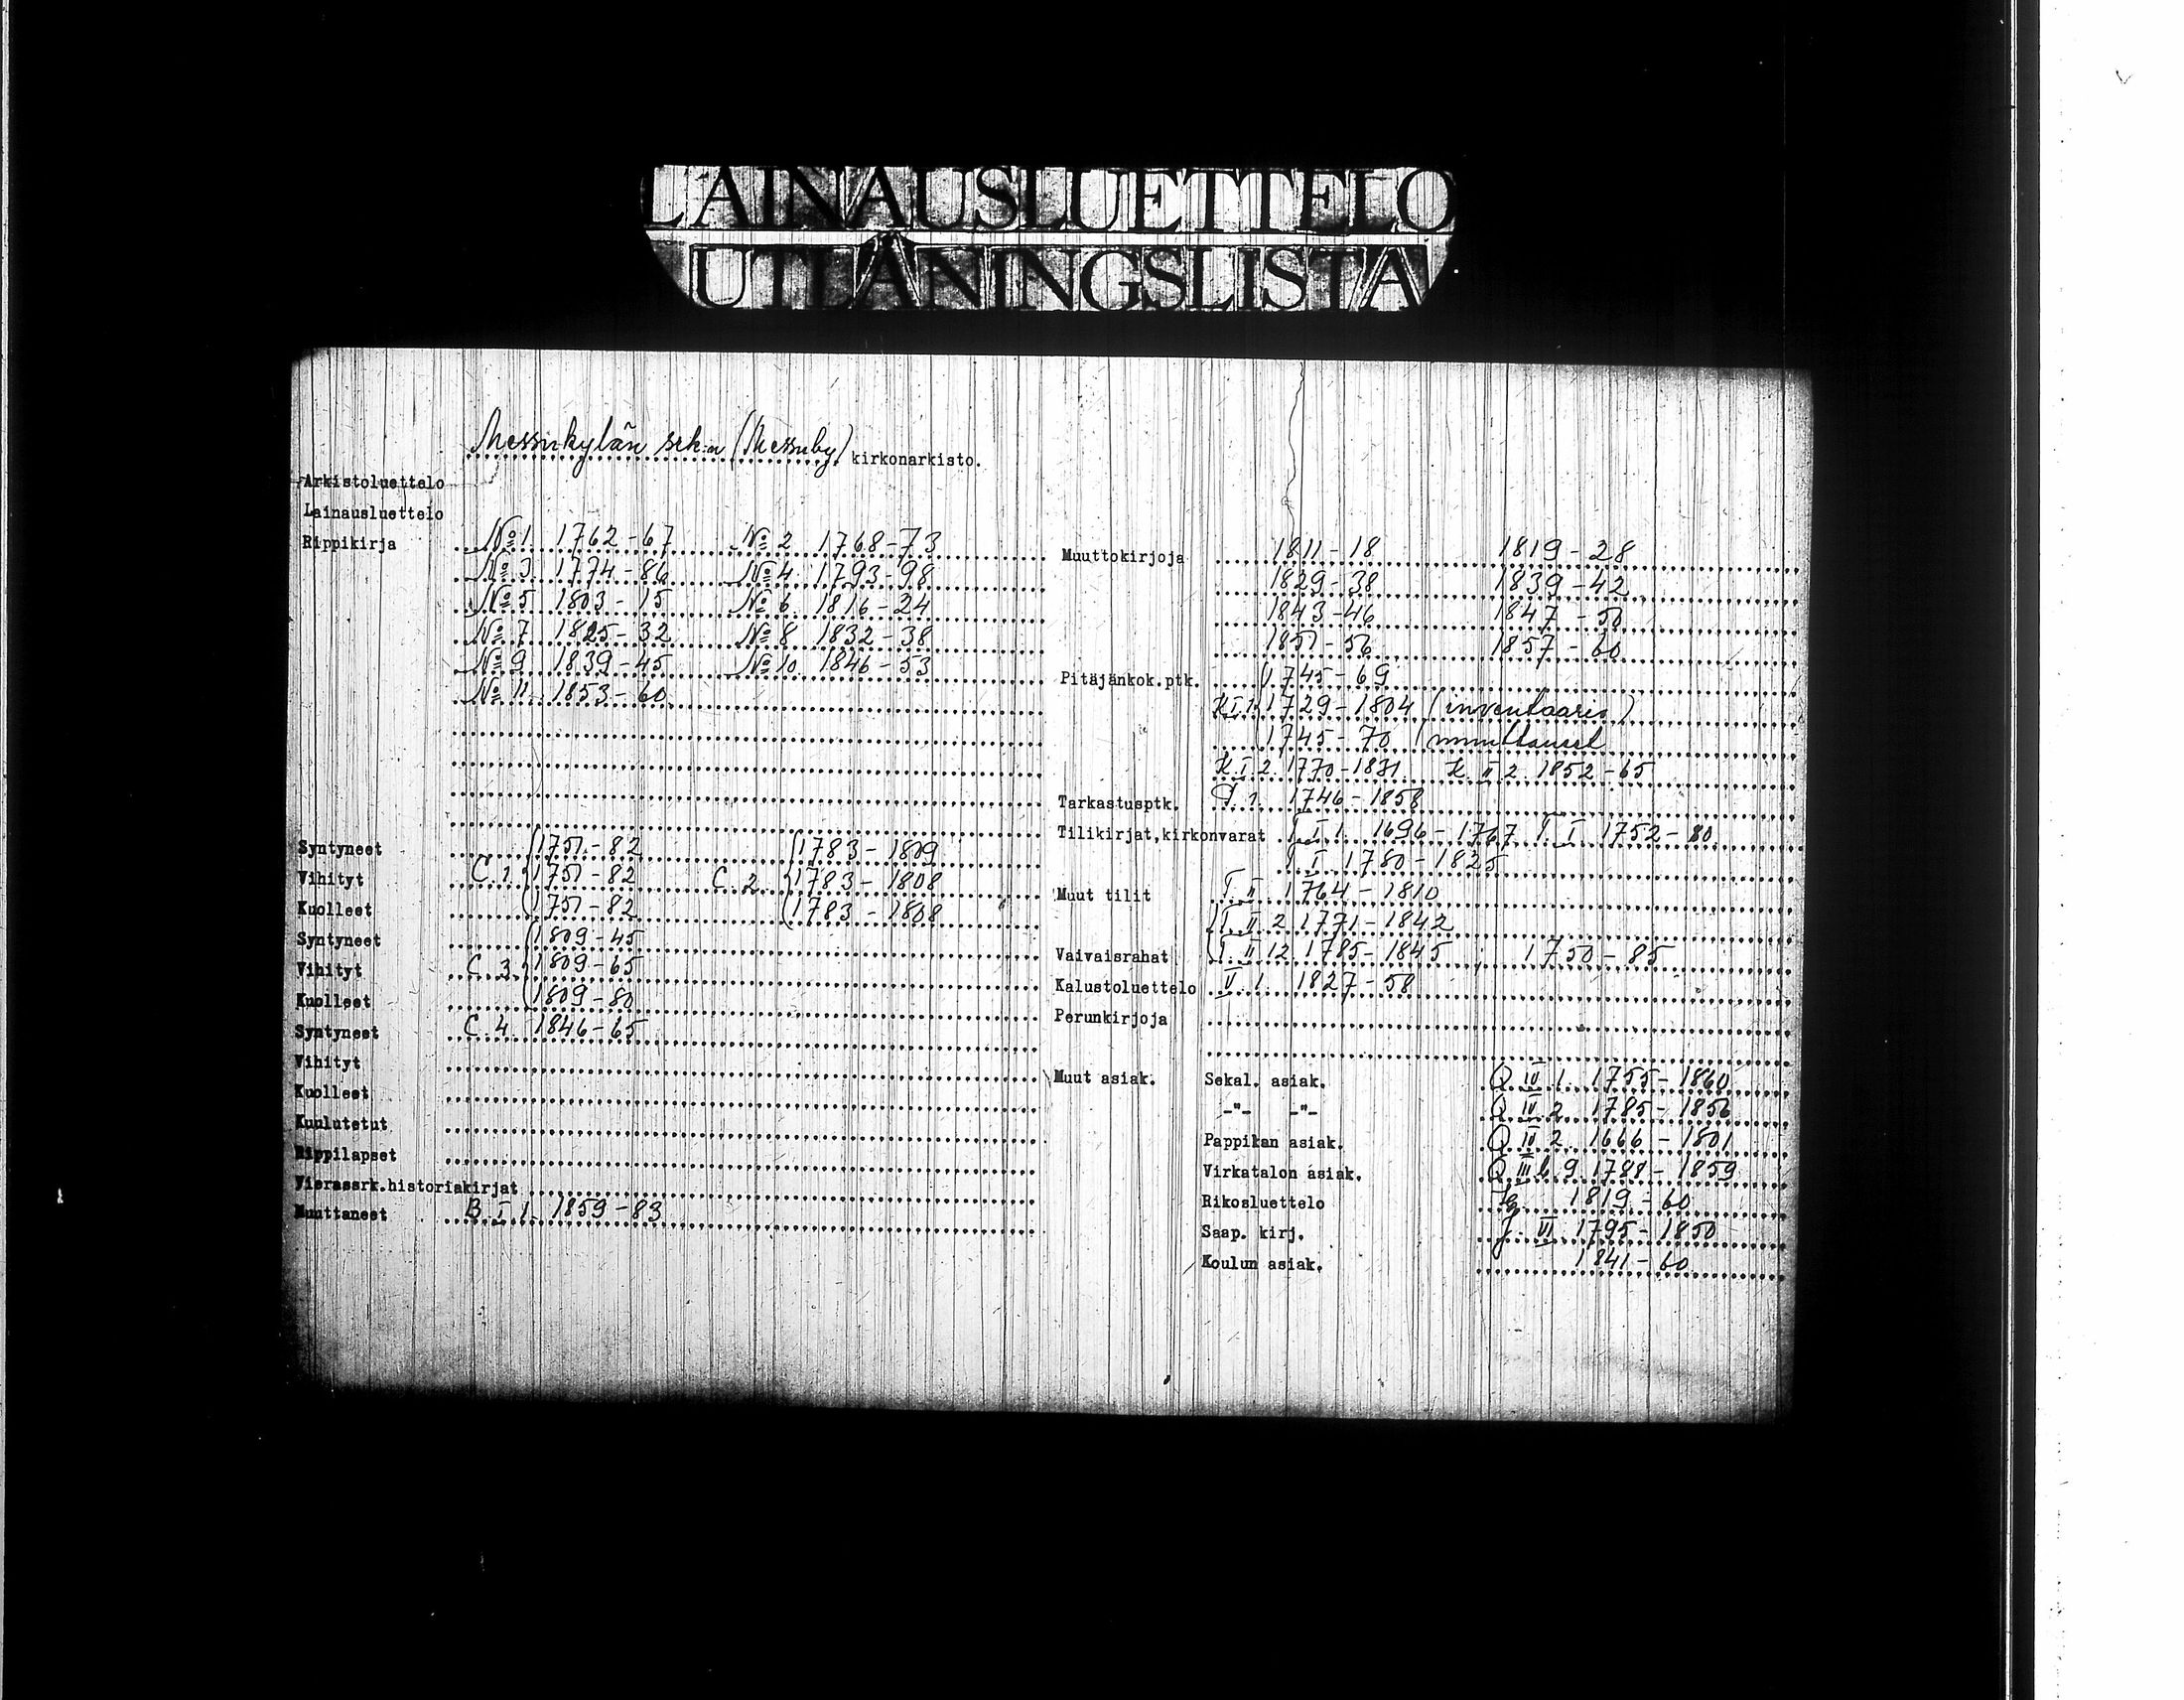 LAINAUSLUETTELO
UTLÅNINGSLISTA
Messukylän srk:n (Messuby) kirkonarkisto.
Arkistoluettelo
Lainausluettelo
Rippikirja No 1 1762-67 No 2 1768-73
No 3 1774-86 No 4 1793-98
No 5 1803-15 No 6 1816-24
No 7 1825-32 No 8 1832-38
No 9 1839-45 No 10 1846-53
No 11 1853-60
Syntyneet 1751-82 1783-1809
Vihityt C.1. 1751-82 C.2. 1783-1808
Kuolleet 1751-82 1783-1808
Syntyneet 1809-45
Vihityt C.3. 1809-65
Kuolleet 1809-80
Syntyneet C.4. 1846-65
Vihityt
Kuolleet
Kuulutetut
Rippilapset
Vierassrk.historiakirjat
Muuttaneet B.I.1. 1859-83
Muuttokirjoja 1811-18 1819-28
1829-38 1839-42
1843-46 1847-50
1851-56 1857-60
Pitäjänkok.ptk. 1745-69
KI.1 1729-1804 (inventaario)
1745-70
K.I.2. 1770-1831 K.II.2. 1852-65
Tarkastusptk. 1746-1858
Tilikirjat,kirkonvarat I.1. 1696-1767 I. 1752-80
I. 1780-1825
Muut tilit II. 1764-1810
II.2 1771-1842
Vaivaisrahat II.12 1785-1845 1750-85
Kalustoluettelo V.1. 1827-58
Perunkirjoja
Muut asiak. Sekal. asiak. Q IV 1. 1755-1860
-"- -"- Q IV 2. 1785-1856
Pappikan asiak. Q IV 2. 1666-1801
Virkatalon asiak. Q III b 9 1788-1859
Rikosluettelo 1819-60
Saap. kirj. J. VI 1795-1850
Koulun asiak. 1841-60